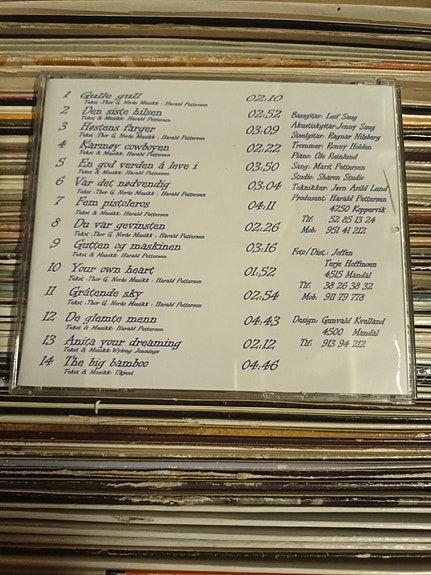 1 Gulle gull 02:10
Tekst :Thor G. Norås Musikk : Harald Pettersen
2 Den siste hilsen 02:52
Tekst & Musikk: Harald Pettersen
3 Høstens farger 03:09
Tekst :Thor G. Norås Musikk : Harald Pettersen
4 Karmøy cowboyen 02:22
Tekst & Musikk: Harald Pettersen
5 En god verden å leve i 03:50
Tekst :Thor G. Norås Musikk : Harald Pettersen
6 Var det nødvendig 03:04
Tekst :Thor G. Norås Musikk : Harald Pettersen
7 Fem pistoleros 04:11
Tekst & Musikk: Harald Pettersen
8 Du var gevinsten 02:26
Tekst :Thor G. Norås Musikk : Harald Pettersen
9 Gutten og maskinen 03:16
Tekst & Musikk: Harald Pettersen
10 Your own heart 01,52
Tekst :Thor G. Norås Musikk : Harald Pettersen
11 Gråtende sky 02;54
Tekst :Thor G. Norås Musikk : Harald Pettersen
12 De glemte menn 04:43
Tekst & Musikk: Harald Pettersen
13 Anita your dreaming 02:12
Tekst & Musikk: Wylong Jennings
14 The big bamboo 04:46
Tekst & Musikk: Ukjent
Bassgitar: Leif Saug
Akustiskgitar: Jonny Sang
Steelgitar: Ragnar Nilsberg
Trommer: Ronny Holden
Piano: Ole Reinlund
Sang: Marit Pettersen
Studio: Sharen Studio
Tekniker: Jern Arild Lund
Produsent: Harald Pettersen
4250 Kopervik
Tlf: 52 85 13 24
Mob: 951 41 212
Foto/Dist.: Joffen
Terje Hoffmoen
4515 Mandal
Tlf: 38 26 38 32
Mob: 911 79 778
Design: Gunvald Kvelland
4500 Mandal
Tlf: 913 94 212